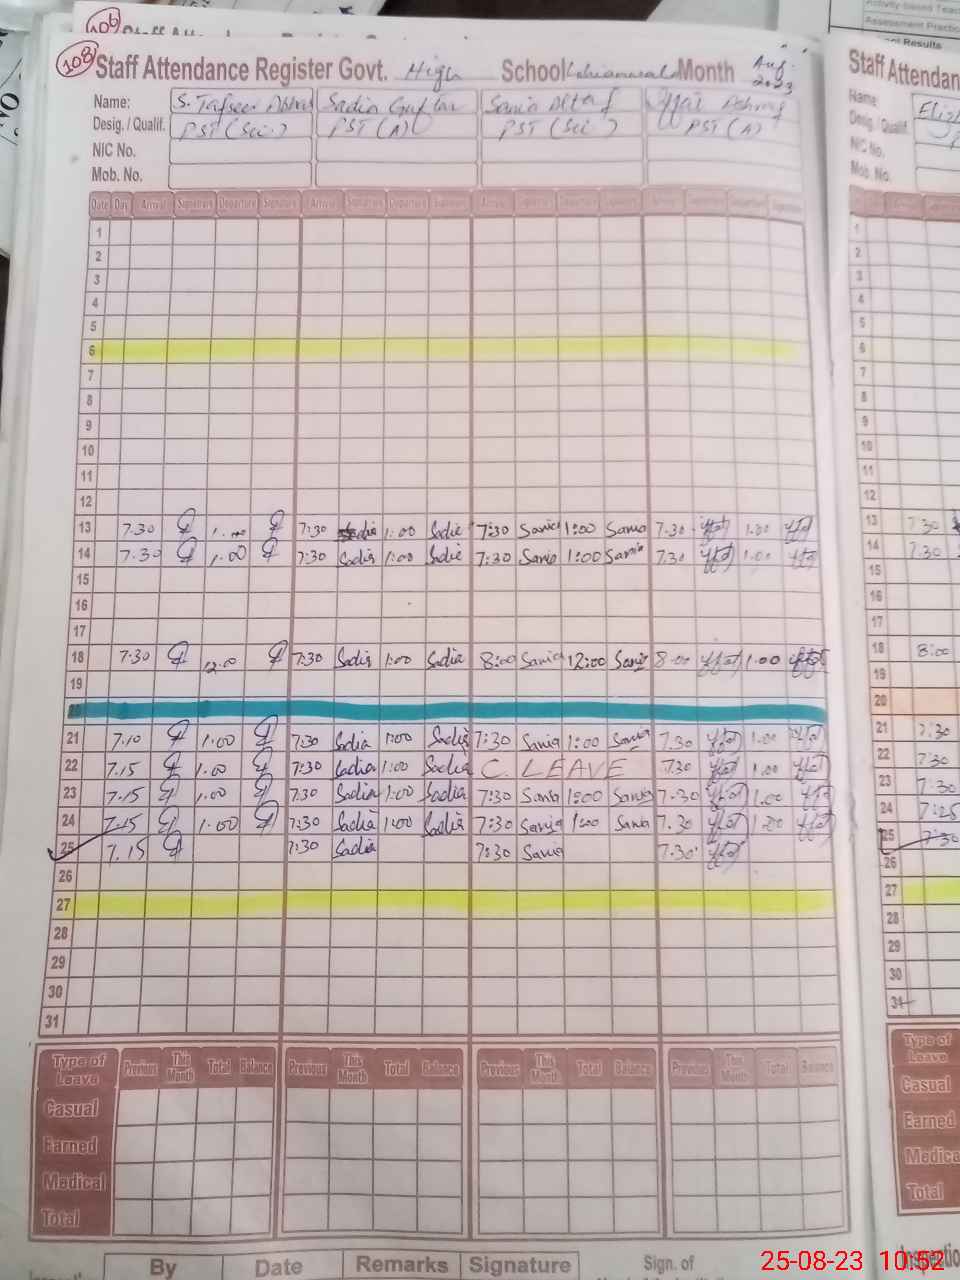 106
108
Staff Attendance Register Govt. High School Month Aug. 2023
Name: S. Sadia Sania Altaf Ashraf
Desig. / Qualif. PST (Sci.) PST (A) PST (Sci.) PST (A)
NIC No.
Mob. No.
Date Day Arrival Signature Departure Signature Arrival Signature Departure Signature Arrival Signature Departure Signature Arrival Signature Departure Signature
1
2
3
4
5
6
7
8
9
10
11
12
13 7.30 7:30 Sadia 1:00 Sadia 7:30 Sania 1:00 Sania 7.30 Iffat 1.00 Iffat
14 7.30 1.00 7:30 Sadia 1:00 Sadia 7:30 Sania 1:00 Sania 7.30 Iffat 1.00 Iffat
15
16
17
18 7.30 12.00 7:30 Sadia 1:00 Sadia 8:00 Sania 12:00 Sania 8.00 Iffat 1.00 Iffat
19
20
21 7.10 1.00 7:30 Sadia 1:00 Sadia 7:30 Sania 1:00 Sania 7.30 Iffat 1.00 Iffat
22 7.15 1.00 7:30 Sadia 1:00 Sadia C. LEAVE 7.30 Iffat 1.00 Iffat
23 7.15 1.00 7:30 Sadia 1:00 Sadia 7:30 Sania 1:00 Sania 7.30 Iffat 1.00 Iffat
24 7.15 1.00 7:30 Sadia 1:00 Sadia 7:30 Sania 1:00 Sania 7.30 Iffat 1.00 Iffat
25 7.15 7:30 Sadia 7:30 Sania 7.30 Iffat
26
27
28
29
30
31
Type of Leave Previous This Month Total Balance Previous This Month Total Balance Previous This Month Total Balance Previous This Month Total Balance
Casual
Earned
Medical
Total
By Date Remarks Signature Sign. of
Activity-based
Assessment
Results
Staff Attendan
Name
Desig. / Qualif.
NIC No.
Mob. No.
1
2
3
4
5
6
7
8
9
10
11
12
13 7.30
14 7.30
15
16
17
18 8:00
19
20
21 7:30
22 7:30
23 7:30
24 7:25
25 7:30
26
27
28
29
30
31
Type of Leave
Casual
Earned
Medica
Total
Inspectio
25-08-23 10:52